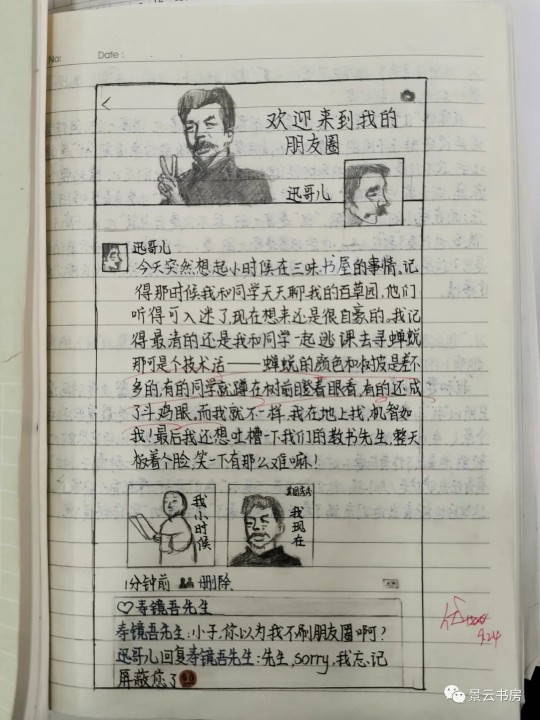 No:
Date:
欢迎来到我的
朋友圈
迅哥儿
迅哥儿
今天突然想起小时候在三味书屋的事情、记
得那时候我和同学天天聊我的百草园,他们
听得可入迷了,现在想来还是很自豪的。我记
得最清的还是我和同学一起逃课去寻蝉蜕
那可是个技术活——蝉蜕的颜色和树皮是差不
多的,有的同学就蹲在树前瞪着眼看,有的还成
了斗鸡眼,而我就不一样,我在地上找,机智如
我!最后我还想吐槽一下我们的教书先生,整天
板着个脸,笑一下有那么难嘛!
我小时候
我现在
1分钟前 删除
寿镜吾先生
寿镜吾先生:小子,你以为我不刷朋友圈啊?
迅哥儿回复寿镜吾先生:先生,sorry,我忘记
屏蔽您了
9.24
景云书房